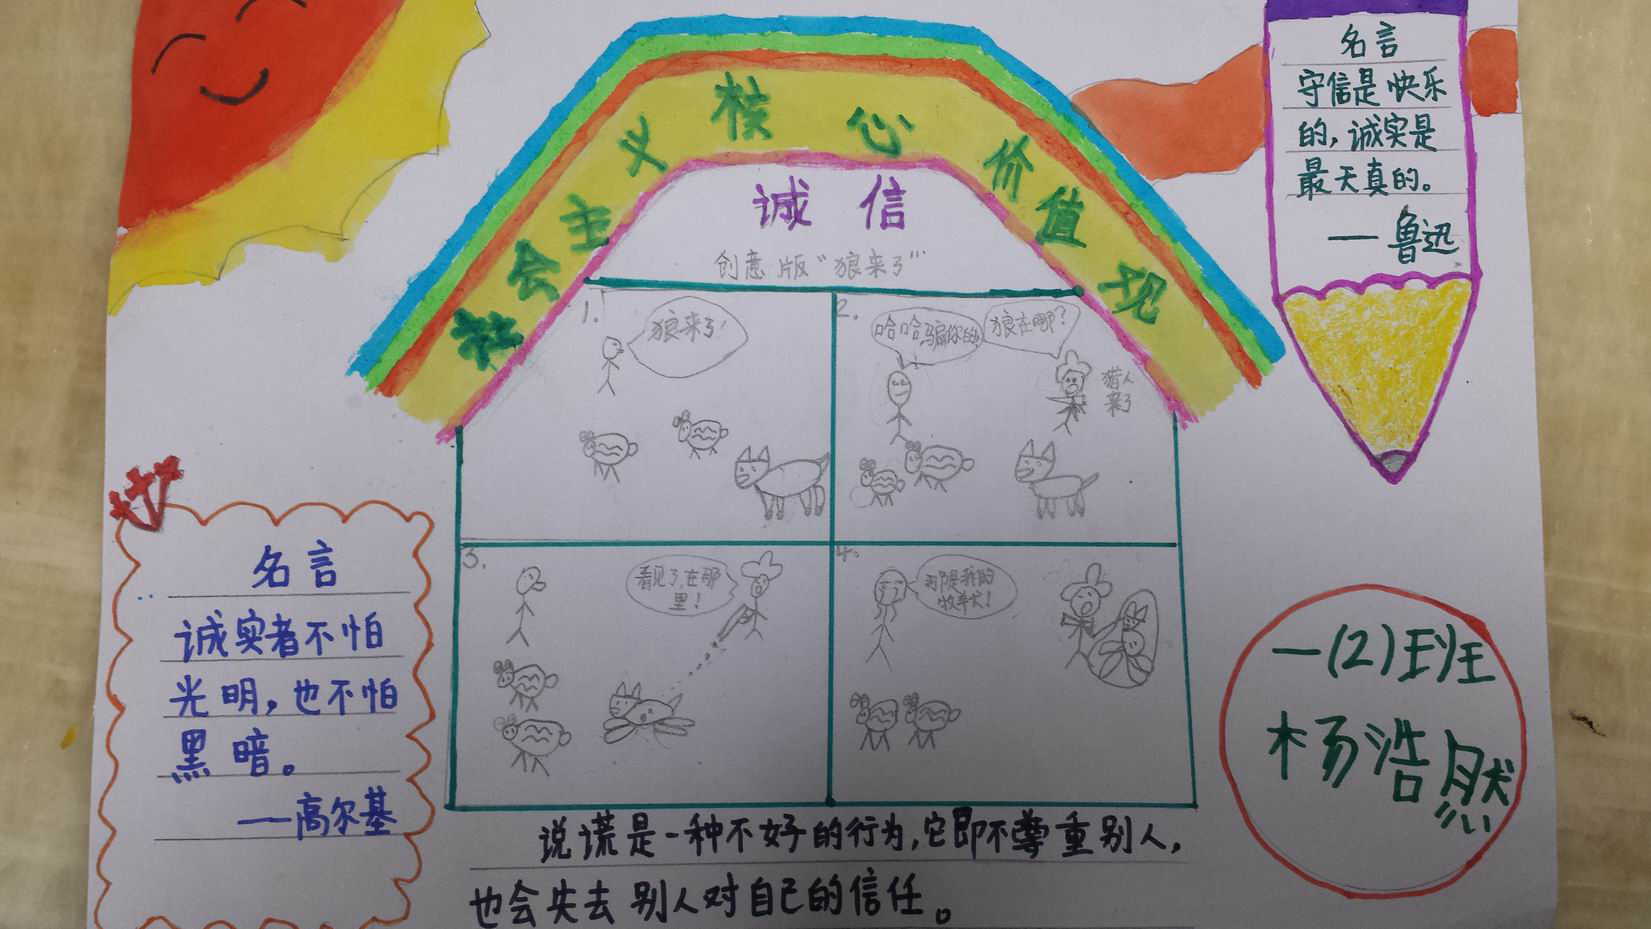 社会主义核心价值现
诚信
创意版“狼来了”
名言
守信是快乐
的,诚实是
最天真的。
— 鲁迅
1.
狼来了!
2.
哈哈骗你的!
狼在哪?
猎人
来了
3.
看见了,在那
里!
4.
那是我的
牧羊犬!
名言
诚实者不怕
光明,也不怕
黑暗。
——高尔基
一(2)班
杨浩然
说谎是一种不好的行为,它即不尊重别人,
也会失去别人对自己的信任。